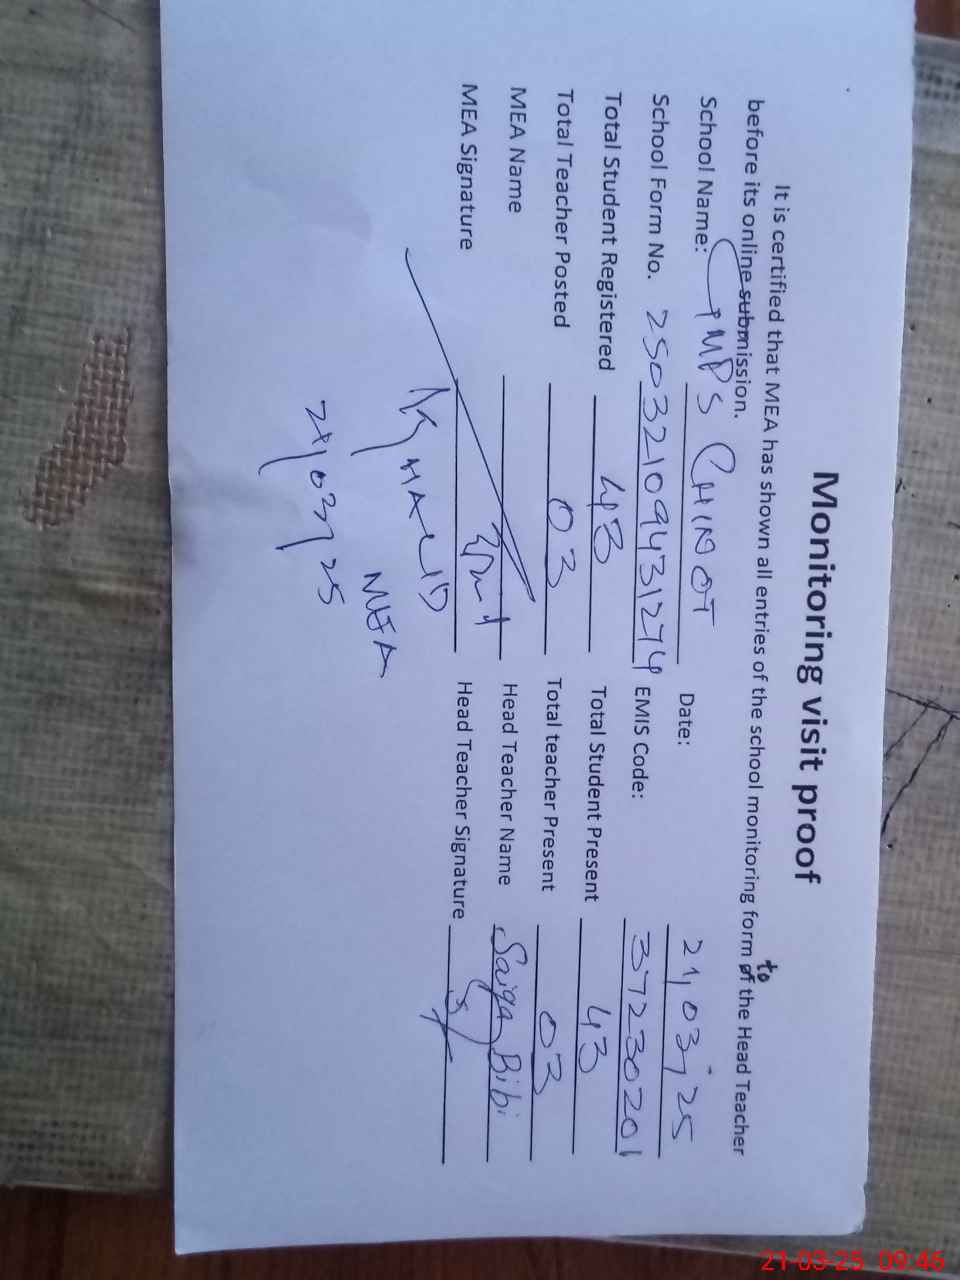 Monitoring visit proof
It is certified that MEA has shown all entries of the school monitoring form of to the Head Teacher
before its online submission.
School Name: GMPS CHINOT Date: 21/03/25
School Form No. 25032109431274 EMIS Code: 37230201
Total Student Registered 43 Total Student Present 43
Total Teacher Posted 03 Total teacher Present 03
MEA Name Head Teacher Name Saiqa Bibi
MEA Signature Head Teacher Signature
MEA
21/03/25
21-03-25 09:46